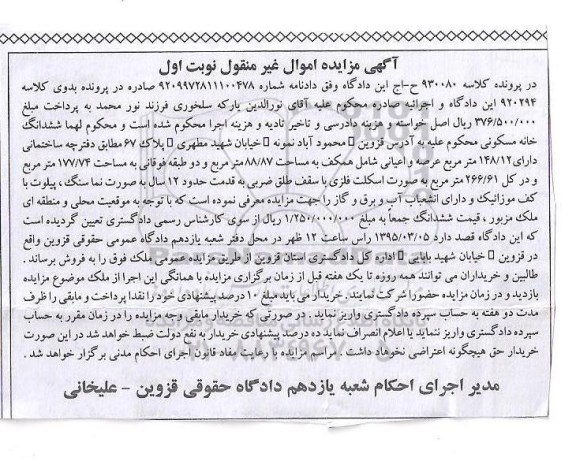 آگهی مزایده اموال غیر منقول نوبت اول
در پرونده کلاسه ۹۳۰۰۸۰ ح-اج این دادگاه وفق دادنامه شماره ۹۲۰۹۹۷۲۸۱۱۱۰۰۴۷۸ صادره در پرونده بدوی کلاسه
۹۲۰۲۹۴ این دادگاه و اجرائیه صادره محکوم علیه آقای نورالدین یارکه سلخوری فرزند نور محمد به پرداخت مبلغ
۳۷۶/۵۰۰/۰۰۰ ریال اصل خواسته و هزینه دادرسی و تاخیر تادیه و هزینه اجرا محکوم شده است و محکوم لهما ششدانگ
خانه مسکونی محکوم علیه به آدرس قزوین محمود آباد نمونه خیابان شهید مطهری پلاک ۶۷ مطابق دفترچه ساختمانی
دارای ۱۴۸/۱۲ متر مربع عرصه و اعیانی شامل همکف به مساحت ۸۸/۸۷ متر مربع و دو طبقه فوقانی به مساحت ۱۷۷/۷۴ متر مربع
و در کل ۲۶۶/۶۱ متر مربع به صورت اسکلت فلزی با سقف طاق ضربی به قدمت حدود ۱۲ سال به صورت نما سنگ ، پیلوت با
کف موزائیک و دارای انشعاب آب و برق و گاز را جهت مزایده معرفی نموده است که با توجه به موقعیت محلی و منطقه ای
ملک مزبور ، قیمت ششدانگ جمعاً به مبلغ ۱/۲۵۰/۰۰۰/۰۰۰ ریال از سوی کارشناس رسمی دادگستری تعیین گردیده است
که این دادگاه قصد دارد ۱۳۹۵/۰۳/۰۵ راس ساعت ۱۲ ظهر در محل دفتر شعبه یازدهم دادگاه عمومی حقوقی قزوین واقع
در قزوین خیابان شهید بابایی اداره کل دادگستری استان قزوین از طریق مزایده عمومی ملک فوق را به فروش برساند .
طالبین و خریداران می توانند همه روزه تا یک هفته قبل از زمان برگزاری مزایده با هماهنگی این اجرا از ملک موضوع مزایده
بازدید و در زمان مزایده حضورا شرکت نمایند. خریدار می باید مبلغ ۱۰ درصد پیشنهادی خود را نقدا پرداخت و مابقی را ظرف
مدت دو هفته به حساب سپرده دادگستری واریز نماید . در صورتی که خریدار مابقی وجه مزایده را در زمان مقرر به حساب
سپرده دادگستری واریز ننماید یا اعلام انصراف نماید ده درصد پیشنهادی خریدار به نفع دولت ضبط خواهد شد در این صورت
خریدار حق هیچگونه اعتراضی نخواهد داشت . مراسم مزایده با رعایت مفاد قانون اجرای احکام مدنی برگزار خواهد شد .
مدیر اجرای احکام شعبه یازدهم دادگاه حقوقی قزوین - علیخانی